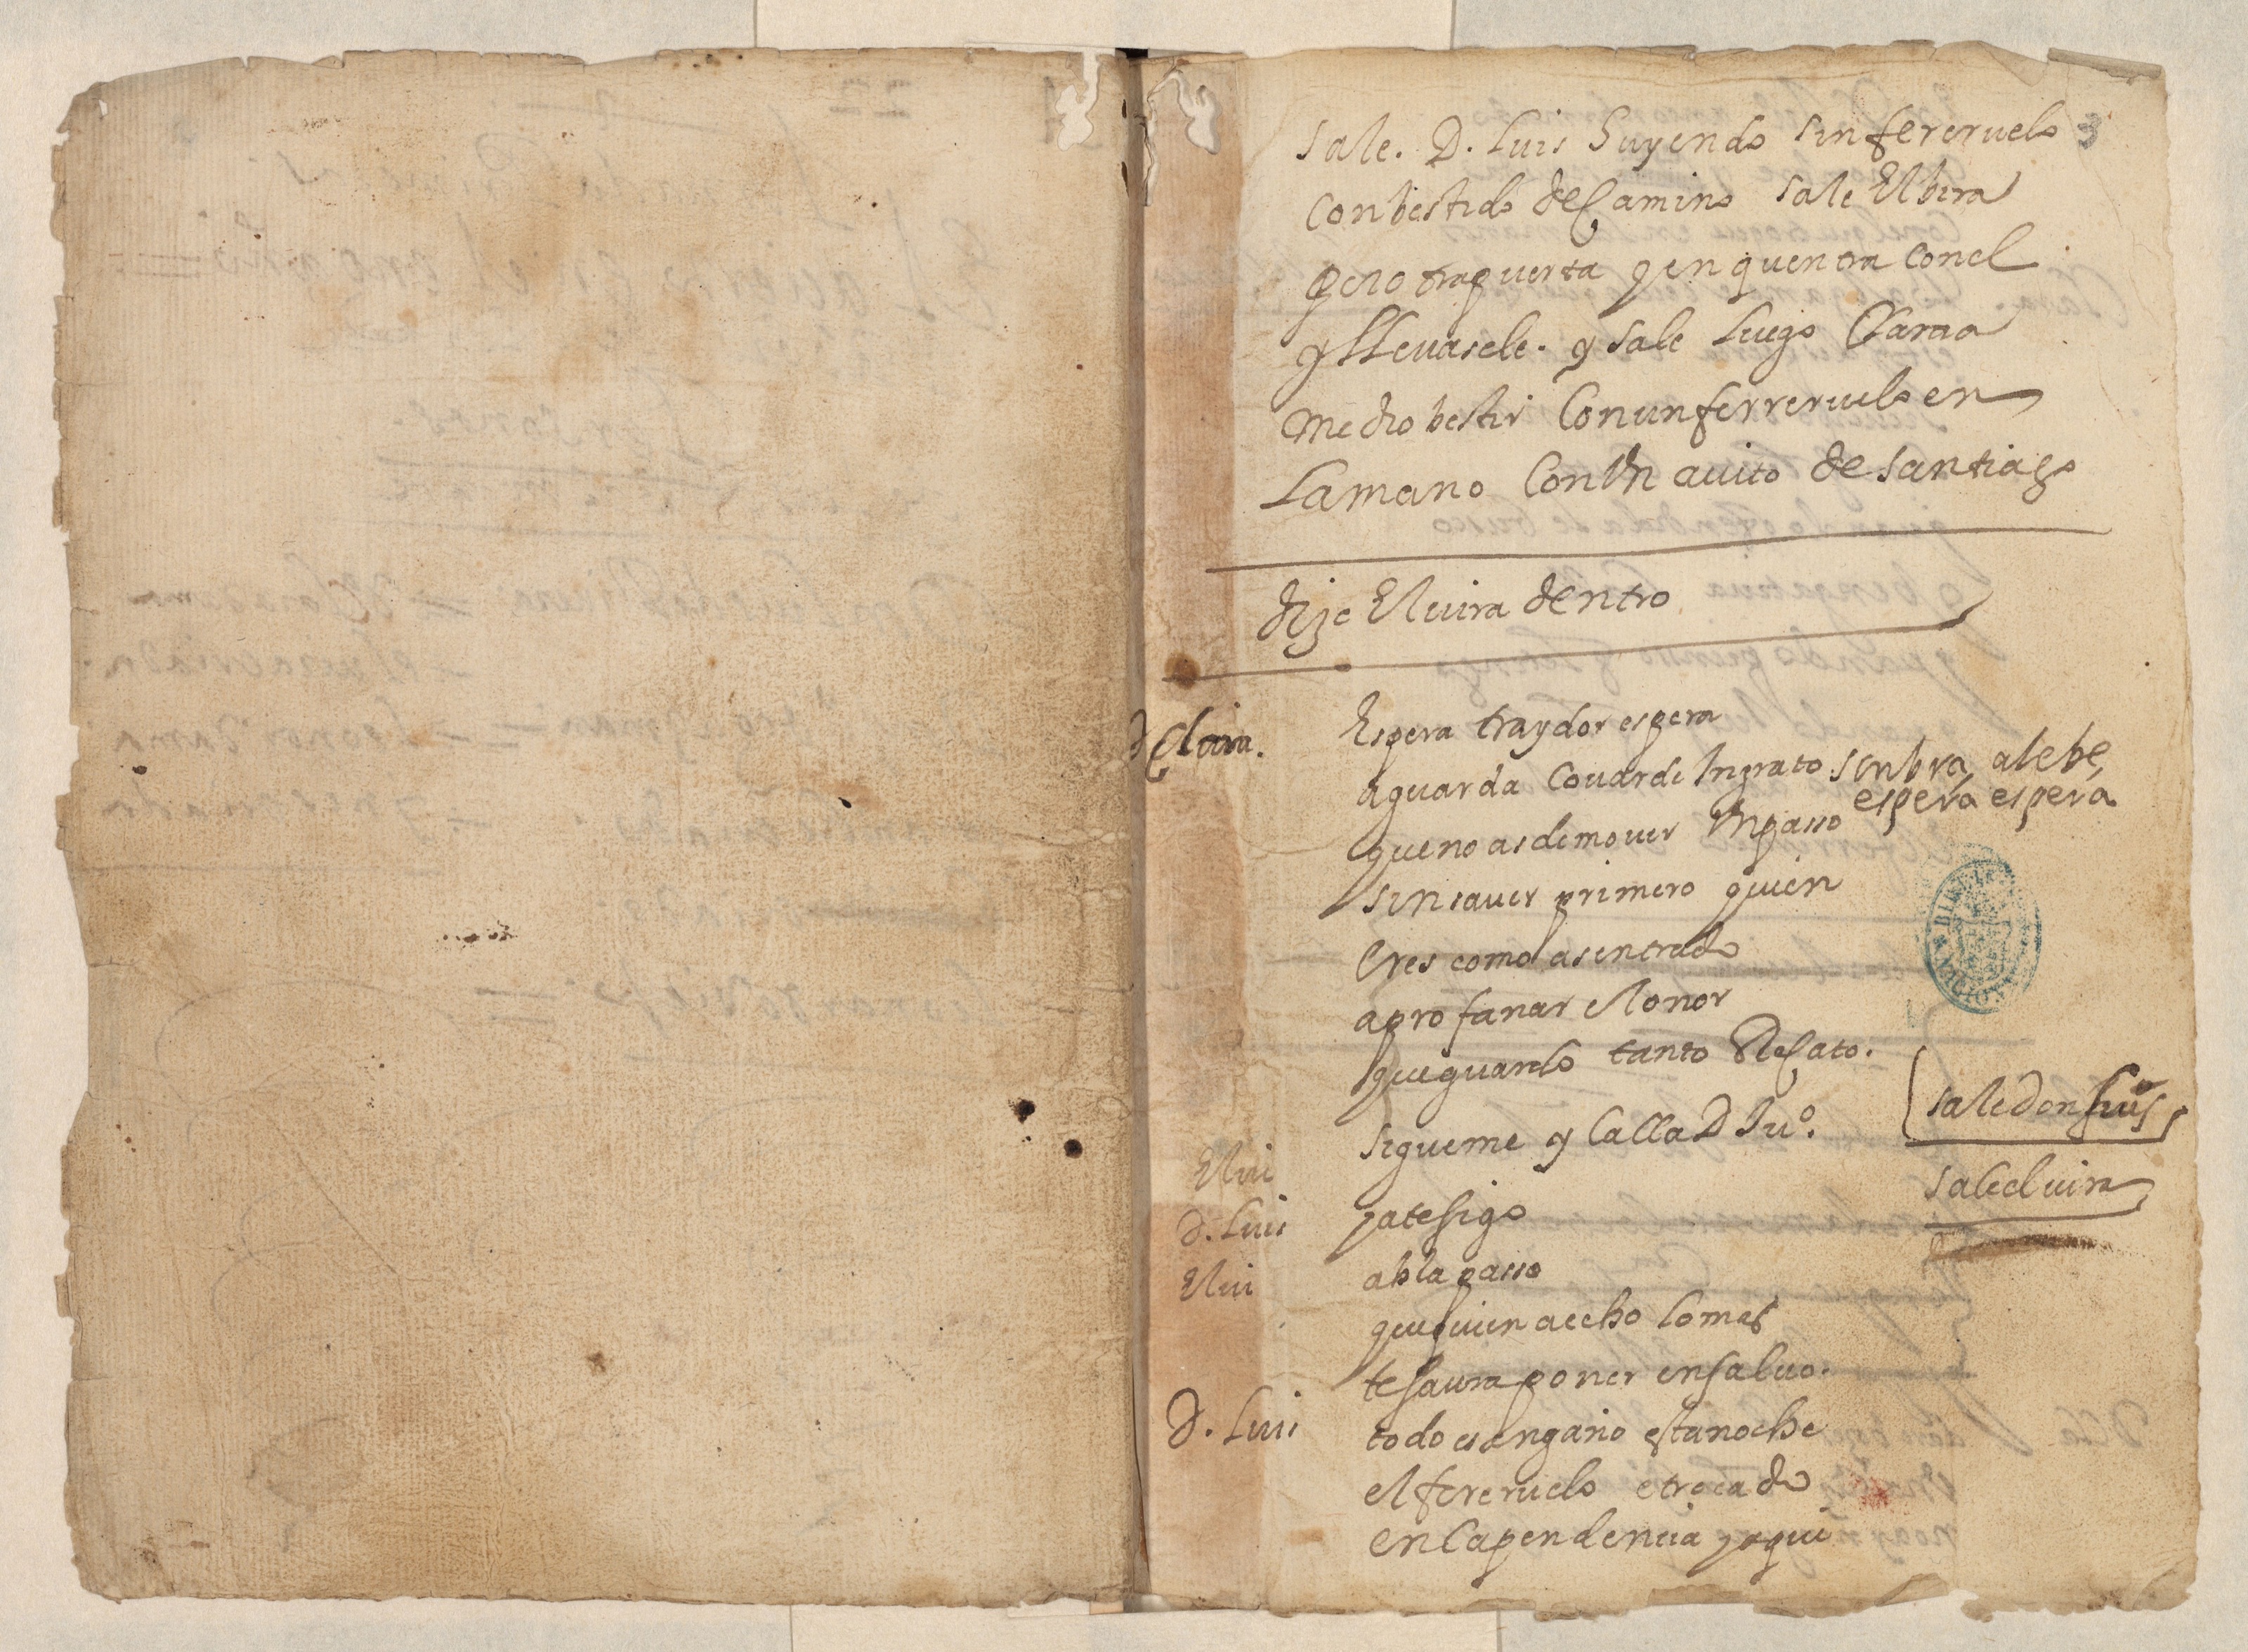 3
sale. D. Luis huyendo sin fereruelo
Con bestido de Camino sale Elbira
por otra puerta y enquentra con el
y llevasele. y sale luego Clara a
medio bestir Con un ferreruelo en
La mano Con Vn auito de santiago
dize Eluira dentro
Eluira. Espera traydor espera
aguarda Couarde Ingrato sonbra, alebe,
espera espera
que no as de mouer Vn passo
sin sauer primero quien
eres como as entrado
a profanar el onor
que guardo tanto Recato.
sale Don Luis
Elui sigueme y Calla D Juº.
sale eluira
D. Luis ya te sigo
Elui abla passo
que quien a echo lo mas
te saura poner en saluo.
D. Luis todo es engaño esta noche
el fereruelo e trocado
en la pendencia y aqui